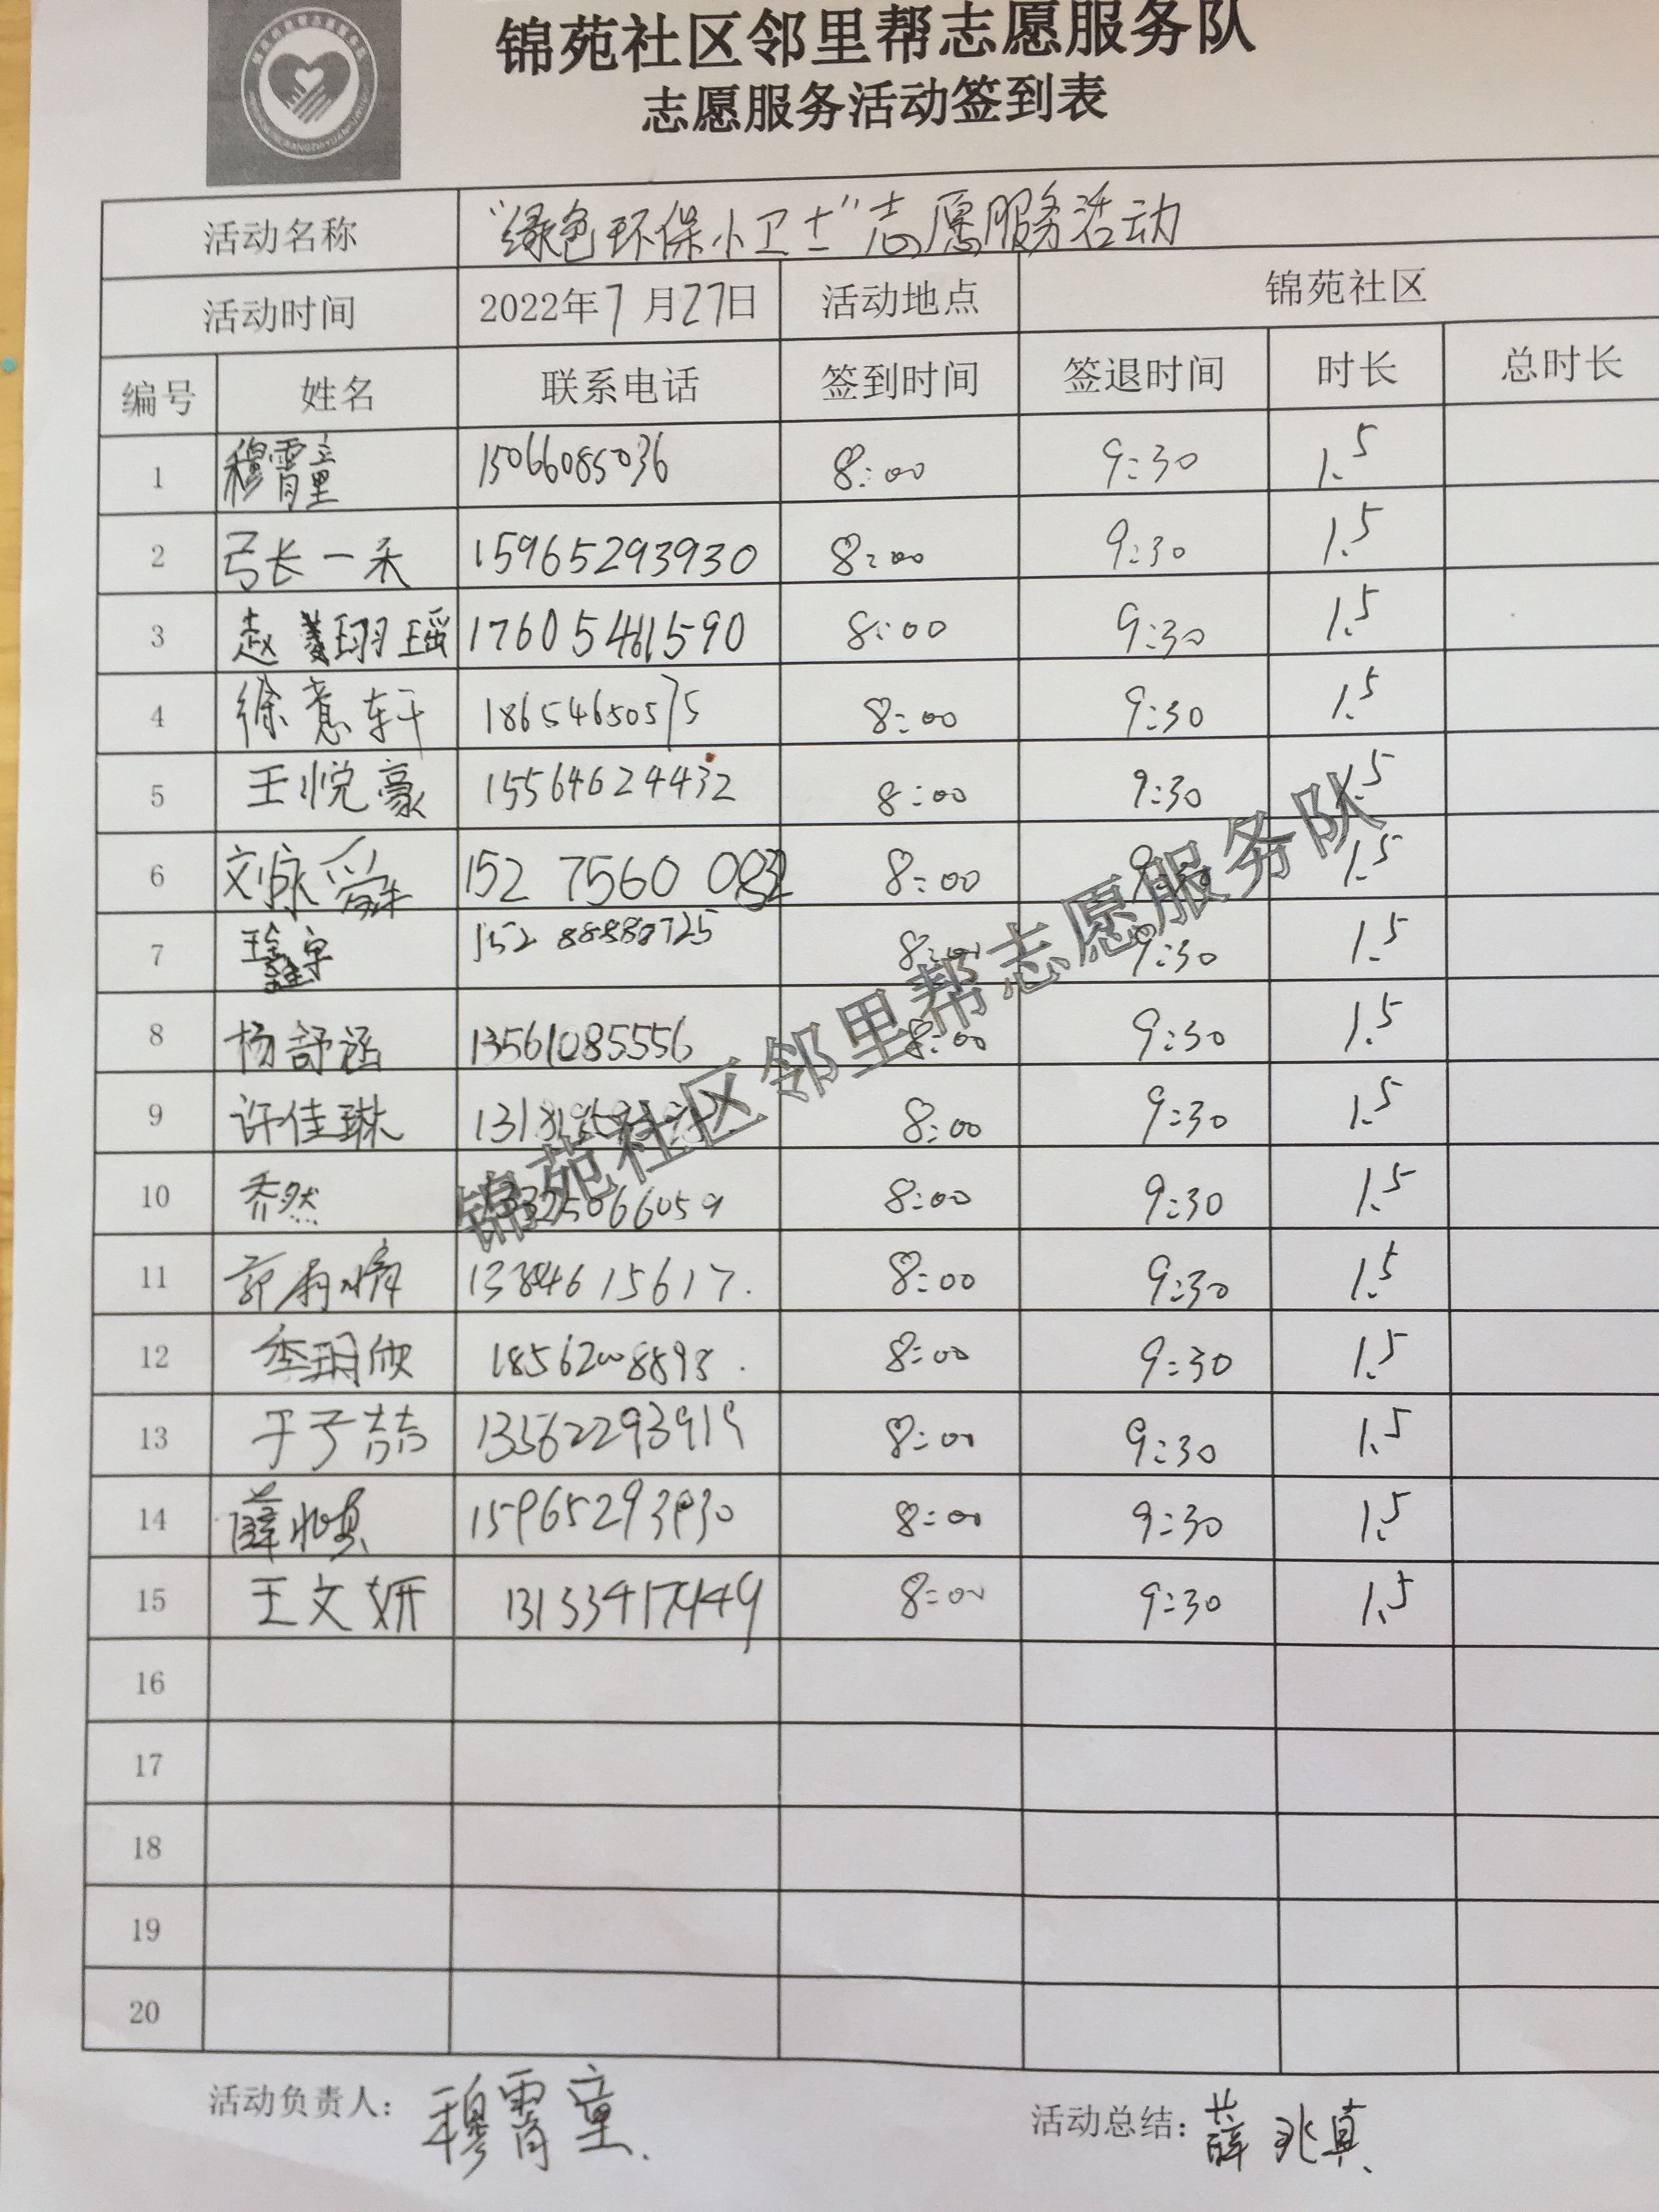 锦苑社区邻里帮志愿服务队
志愿服务活动签到表
活动名称 “绿色环保小卫士”志愿服务活动
活动时间 2022年7月27日 活动地点 锦苑社区
编号 姓名 联系电话 签到时间 签退时间 时长 总时长
1 穆霄童 15066085036 8:00 9:30 1.5
2 弓长一禾 15965293930 8:00 9:30 1.5
3 赵 翊瑶 17605461590 8:00 9:30 1.5
4 徐意轩 18654650575 8:00 9:30 1.5
5 王悦豪 15564624432 8:00 9:30 1.5
6 刘永舜 152 7560 0832 8:00 9:30 1.5
7 8:00 9:30 1.5
8 杨舒涵 13561085556 8:00 9:30 1.5
9 许佳琳 8:00 9:30 1.5
10 乔然 13325066059 8:00 9:30 1.5
11 8:00 9:30 1.5
12 季玥欣 18562008893 8:00 9:30 1.5
13 于子喆 13562293919 8:00 9:30 1.5
14 薛兆真 15965293930 8:00 9:30 1.5
15 王文妍 8:00 9:30 1.5
16
17
18
19
20
锦苑社区邻里帮志愿服务队
活动负责人: 穆霄童 活动总结: 薛兆真